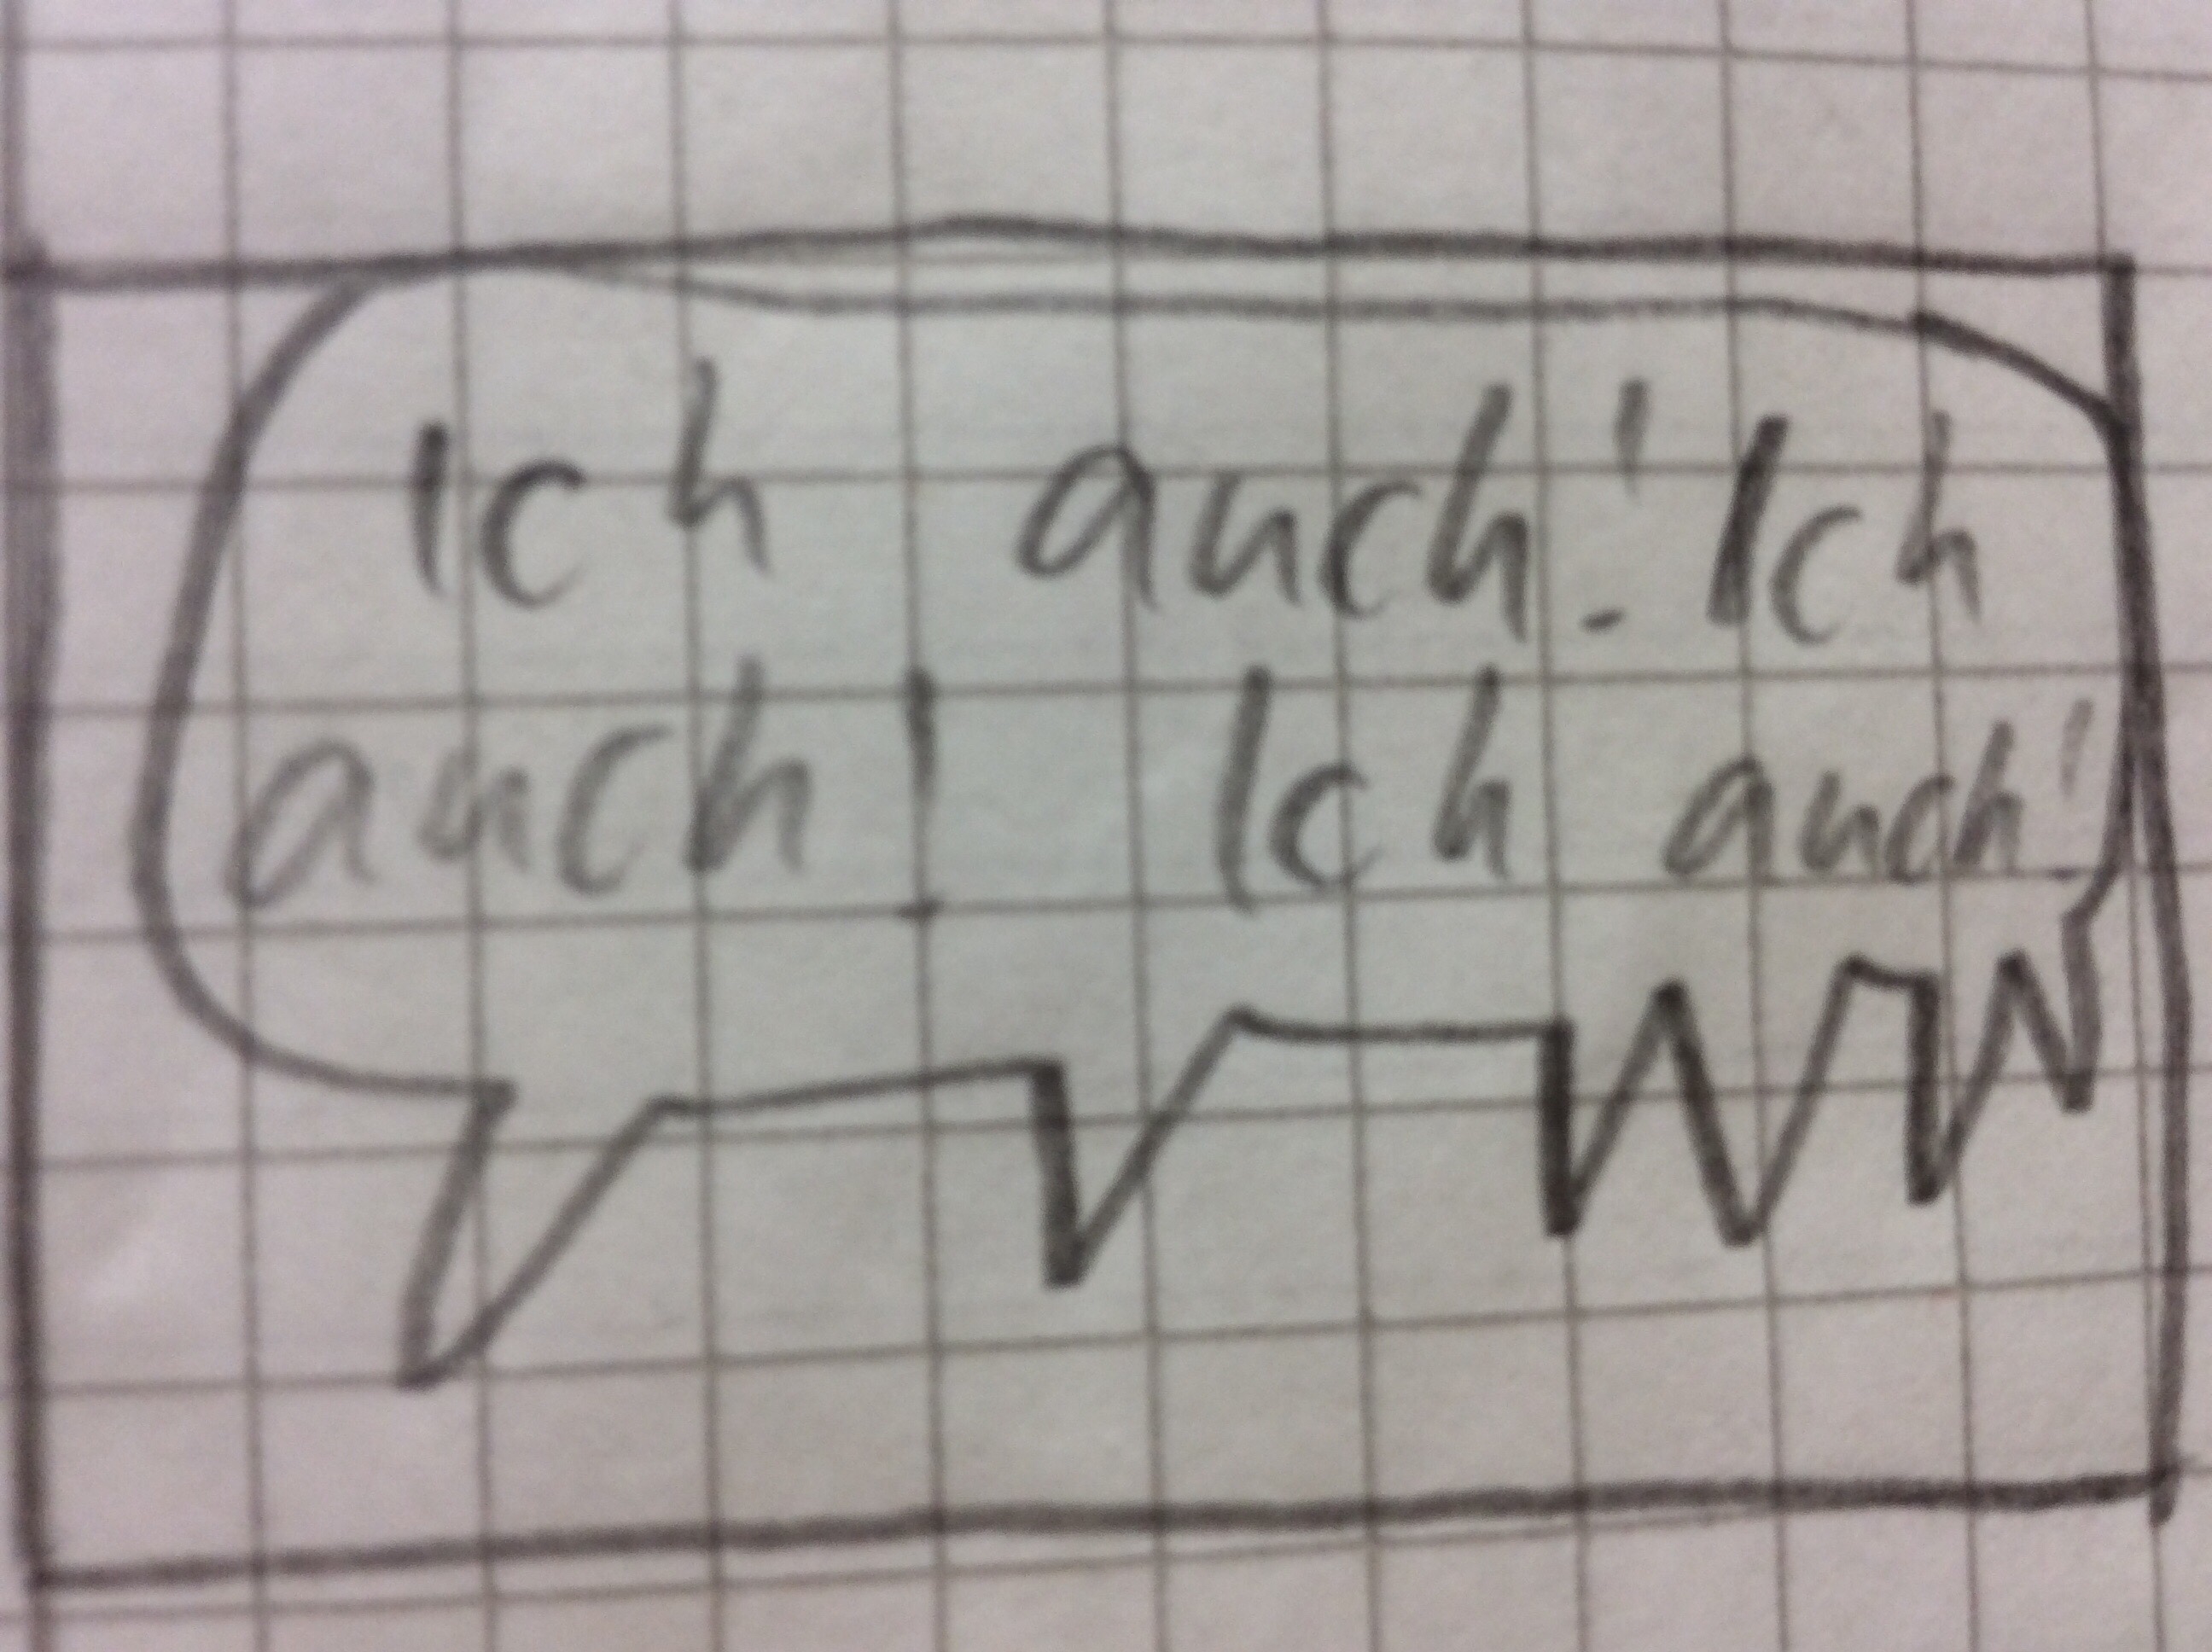 Ich auch! Ich
auch! Ich auch!